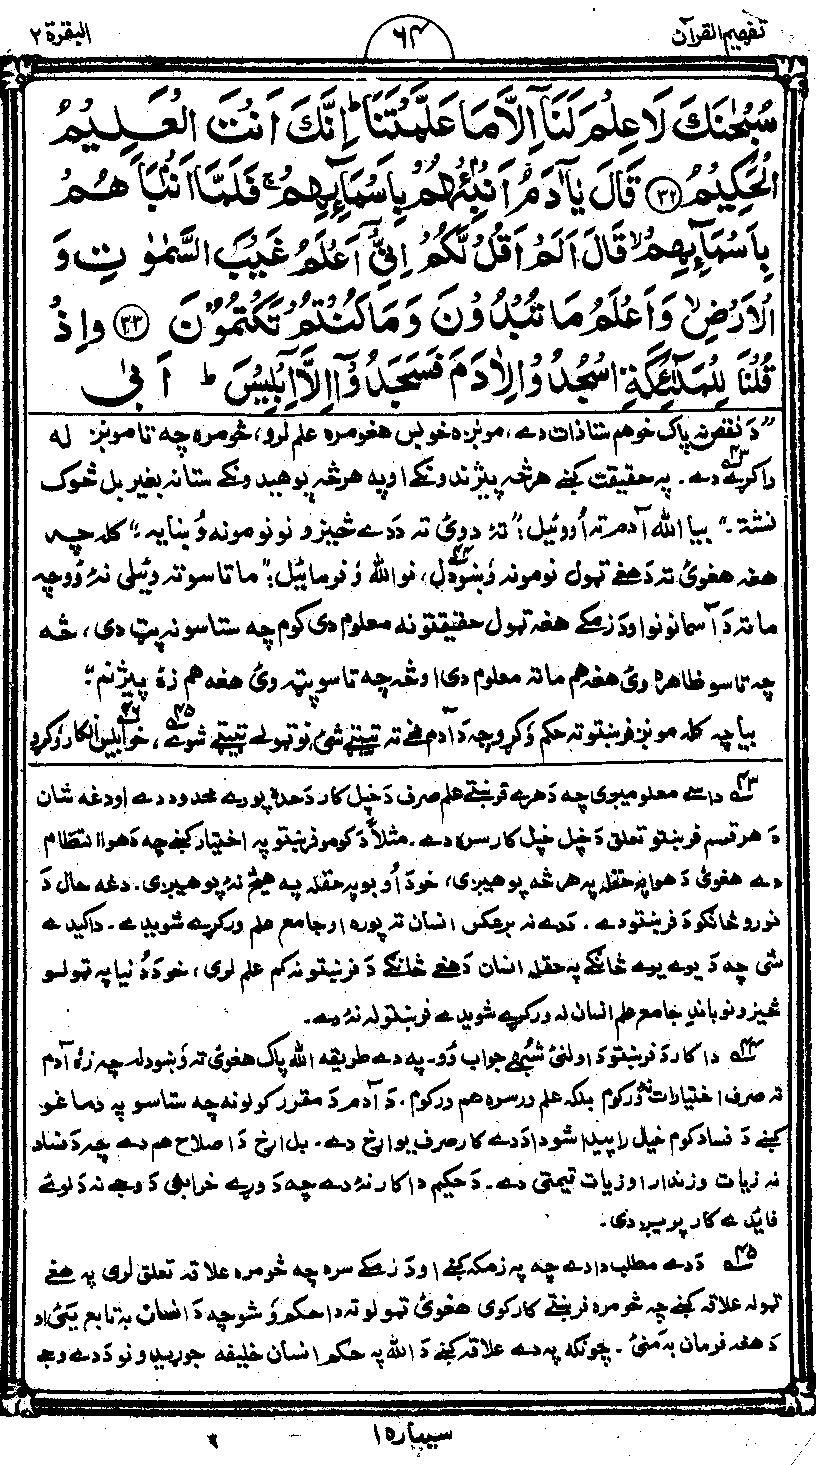 تفهیم القرآن ۶۴ البقرة ۲
سُبْحٰنَكَ لَا عِلْمَ لَنَآ اِلَّا مَا عَلَّمْتَنَا ؕ اِنَّكَ اَنْتَ الْعَلِیْمُ
الْحَكِیْمُ ﴿۳۲﴾ قَالَ یٰۤاٰدَمُ اَنْۢبِئْهُمْ بِاَسْمَآىِٕهِمْ ۚ فَلَمَّاۤ اَنْۢبَاَهُمْ
بِاَسْمَآىِٕهِمْ ۙ قَالَ اَلَمْ اَقُلْ لَّكُمْ اِنِّیْۤ اَعْلَمُ غَیْبَ السَّمٰوٰتِ وَ
الْاَرْضِ ۙ وَ اَعْلَمُ مَا تُبْدُوْنَ وَ مَا كُنْتُمْ تَكْتُمُوْنَ ﴿۳۳﴾ وَ اِذْ
قُلْنَا لِلْمَلٰٓىِٕكَةِ اسْجُدُوْا لِاٰدَمَ فَسَجَدُوْۤا اِلَّاۤ اِبْلِیْسَ ؕ اَبٰی
"د نقص نه پاک خو هم ستا ذات دے، مونږه خو بس هغومره علم لرو، څومره چه تا مونږ له
راکړے ۴۳ دے. په حقیقت کښے هر څه پیژندونکے او په هر څه پوهیدونکے ستا نه بغیر بل څوک
نشته." بیا الله آدم ته اُووئیل: "تۀ دوئ ته د دے څیزونو نومونه وُښایه." کله چه
هغه هغوئ ته د هغے ټول نومونه وُښودل ۴۴، نو الله وُفرمائیل: "ما تاسو ته وئیلی نۀ وُو چه
ما ته د آسمانونو او د زمکے هغه ټول حقیقتونه معلوم دی کوم چه ستاسو نه پټ دی، څه
چه تاسو ظاهروئ هغه هم ما ته معلوم دی او څه چه تاسو پټوئ هغه هم زۀ پیژنم."
بیا چه کله مونږ فرښتو ته حکم وُکړو چه د آدم مخے ته ټیټے شئ نو ټولے ټیټے شوے ۴۵، خو ابلیس ۴۶ انکار وُکړو
۴۳ د دے معلومیږی چه د هرے فرښتے علم صرف د خپل کار د حده پورے محدود دے او دغه شان
د هر قسم فرښتو تعلق د خپل خپل کار سره دے. مثلاً د کومو فرښتو په اختیار کښے چه د هوا انتظام
دے هغوئ د هوا په حقله په هر څه پوهیږی، خو د اُوبو په حقله په هیڅ نۀ پوهیږی. دغه حال د
نورو څانګو د فرښتو دے. د دے نه برعکس انسان ته پوره او جامع علم ورکړے شوے دے. داکیدے
شی چه د یوے یوے څانګے په حقله انسان د هغے څانګے د فرښتو نه کم علم لری، خو د دُنیا په ټولو
څیزونو باندِ جامع علم انسان له ورکړے شوے دے فرښتو له نۀ دے.
۴۴ دا کار د فرښتو د اولنئ شبهے جواب وُو. په دے طریقه الله پاک هغوئ ته وُښودله چه زۀ آدم
ته صرف اختیارات نۀ ورکوم بلکه علم ورسره هم ورکوم. د آدم د مقرر کولو نه چه ستاسو په دماغو
کښے د فساد کوم خیال راپیدا شو دا د دے کار صرف یو ارخ دے. بل ارخ د اصلاح هم دے چه د فساد
نه زیات وزندار او زیات قیمتی دے. د حکیم دا کار نۀ دے چه د وړے خرابئ د وجے نه د لوئے
فائدے کار پریږدی.
۴۵ د دے مطلب دا دے چه په زمکه کښے او د زمکے سره چه څومره علاقه تعلق لری په هغے
ټوله علاقه کښے چه څومره فرښتے کار کوی هغوئ ټولو ته دا حکم وُشو چه د انسان به تابع یئ او
د هغه فرمان به منئ. چونکه په دے علاقه کښے د الله په حکم انسان خلیفه جوړیدو نو د دے وجے
سیپاره ۱